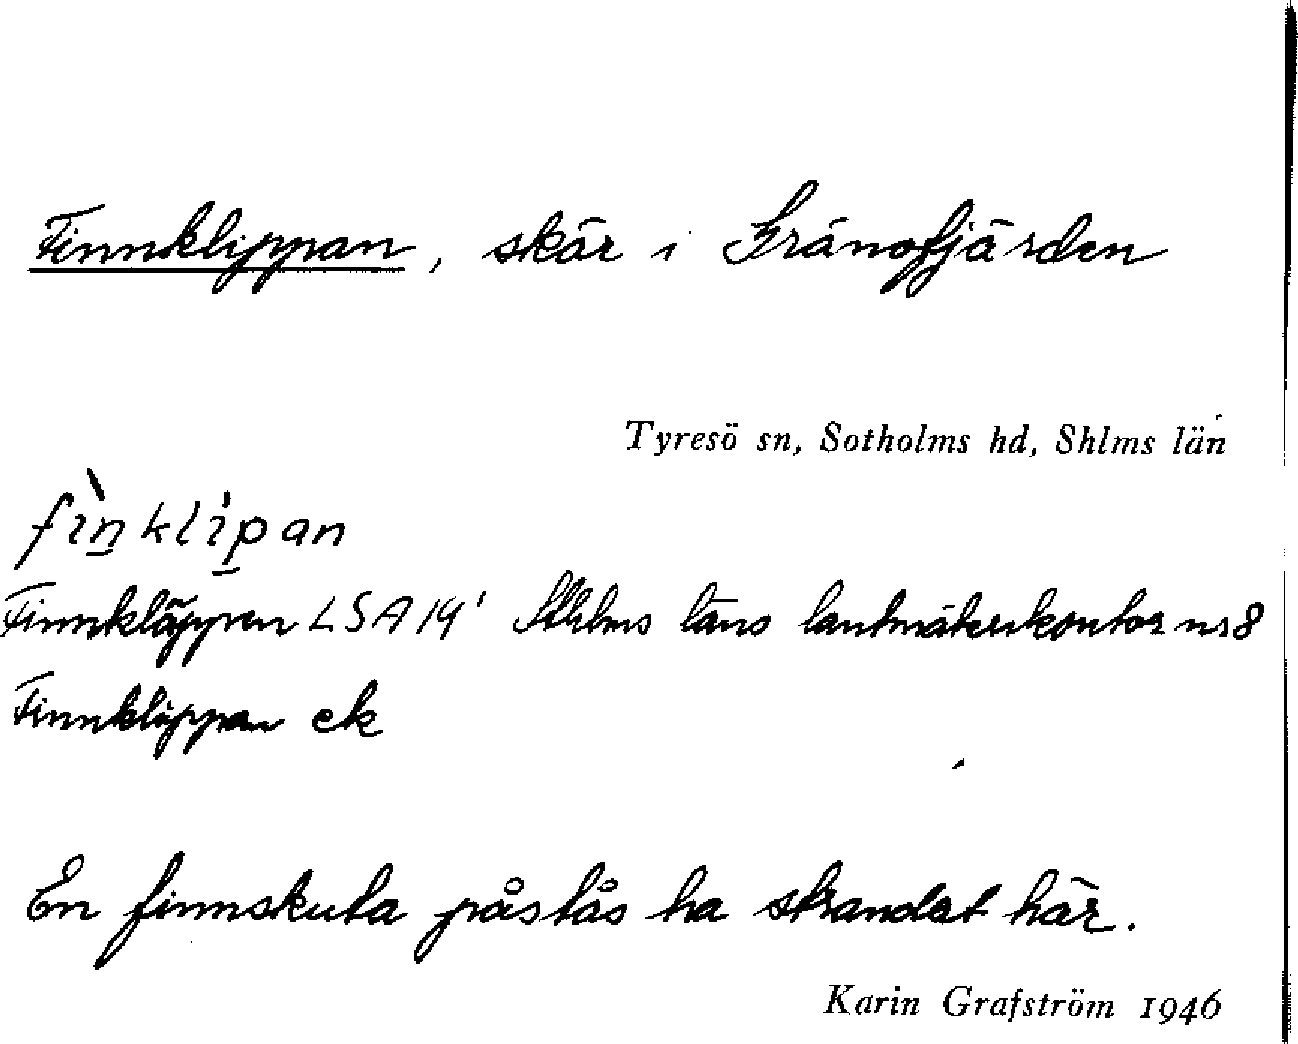 Finnklippan, skär i Franofjärden
Tyresö sn, Sotholms hd, Shlms län
fìn̲klíp̲an
Finnkläppen LSA 19' Sthlms läns lantmäterikontor nr 8
Finnklippan ek
En finnskuta påstås ha strandat här.
Karin Grafström 1946